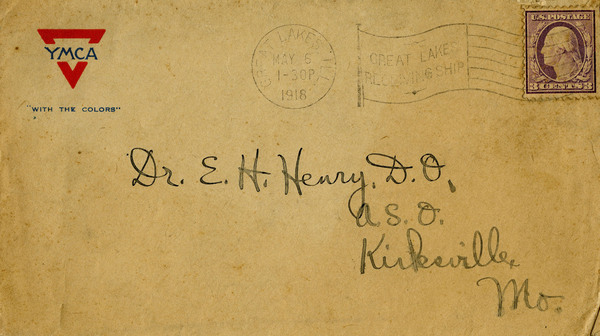 YMCA
"WITH THE COLORS"
GREAT LAKES, ILL.
MAY 6
1-30P
1918
GREAT LAKES
RECEIVING SHIP
U.S. POSTAGE
3 CENTS 3
Dr. E. H. Henry, D.O.,
A.S.O.
Kirksville,
Mo.